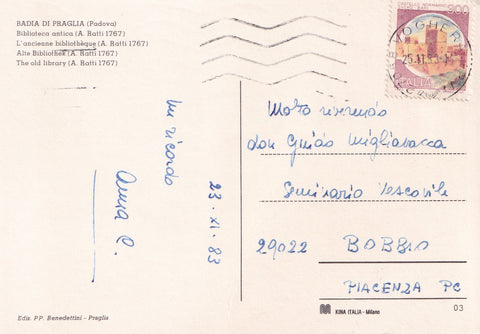 BADIA DI PRAGLIA (Padova)
Biblioteca antica (A. Ratti 1767)
L'ancienne bibliothèque (A. Ratti 1767)
Alte Bibliothek (A. Ratti 1767)
The old library (A. Ratti 1767)
Un ricordo
Anna C.
23-XI-83
300
ITALIA
VOGHERA
Molto reverendo
don Guido Migliavacca
Seminario Vescovile
29022 BOBBIO
PIACENZA PC
Ediz. PP. Benedettini - Praglia
KINA ITALIA - Milano
03